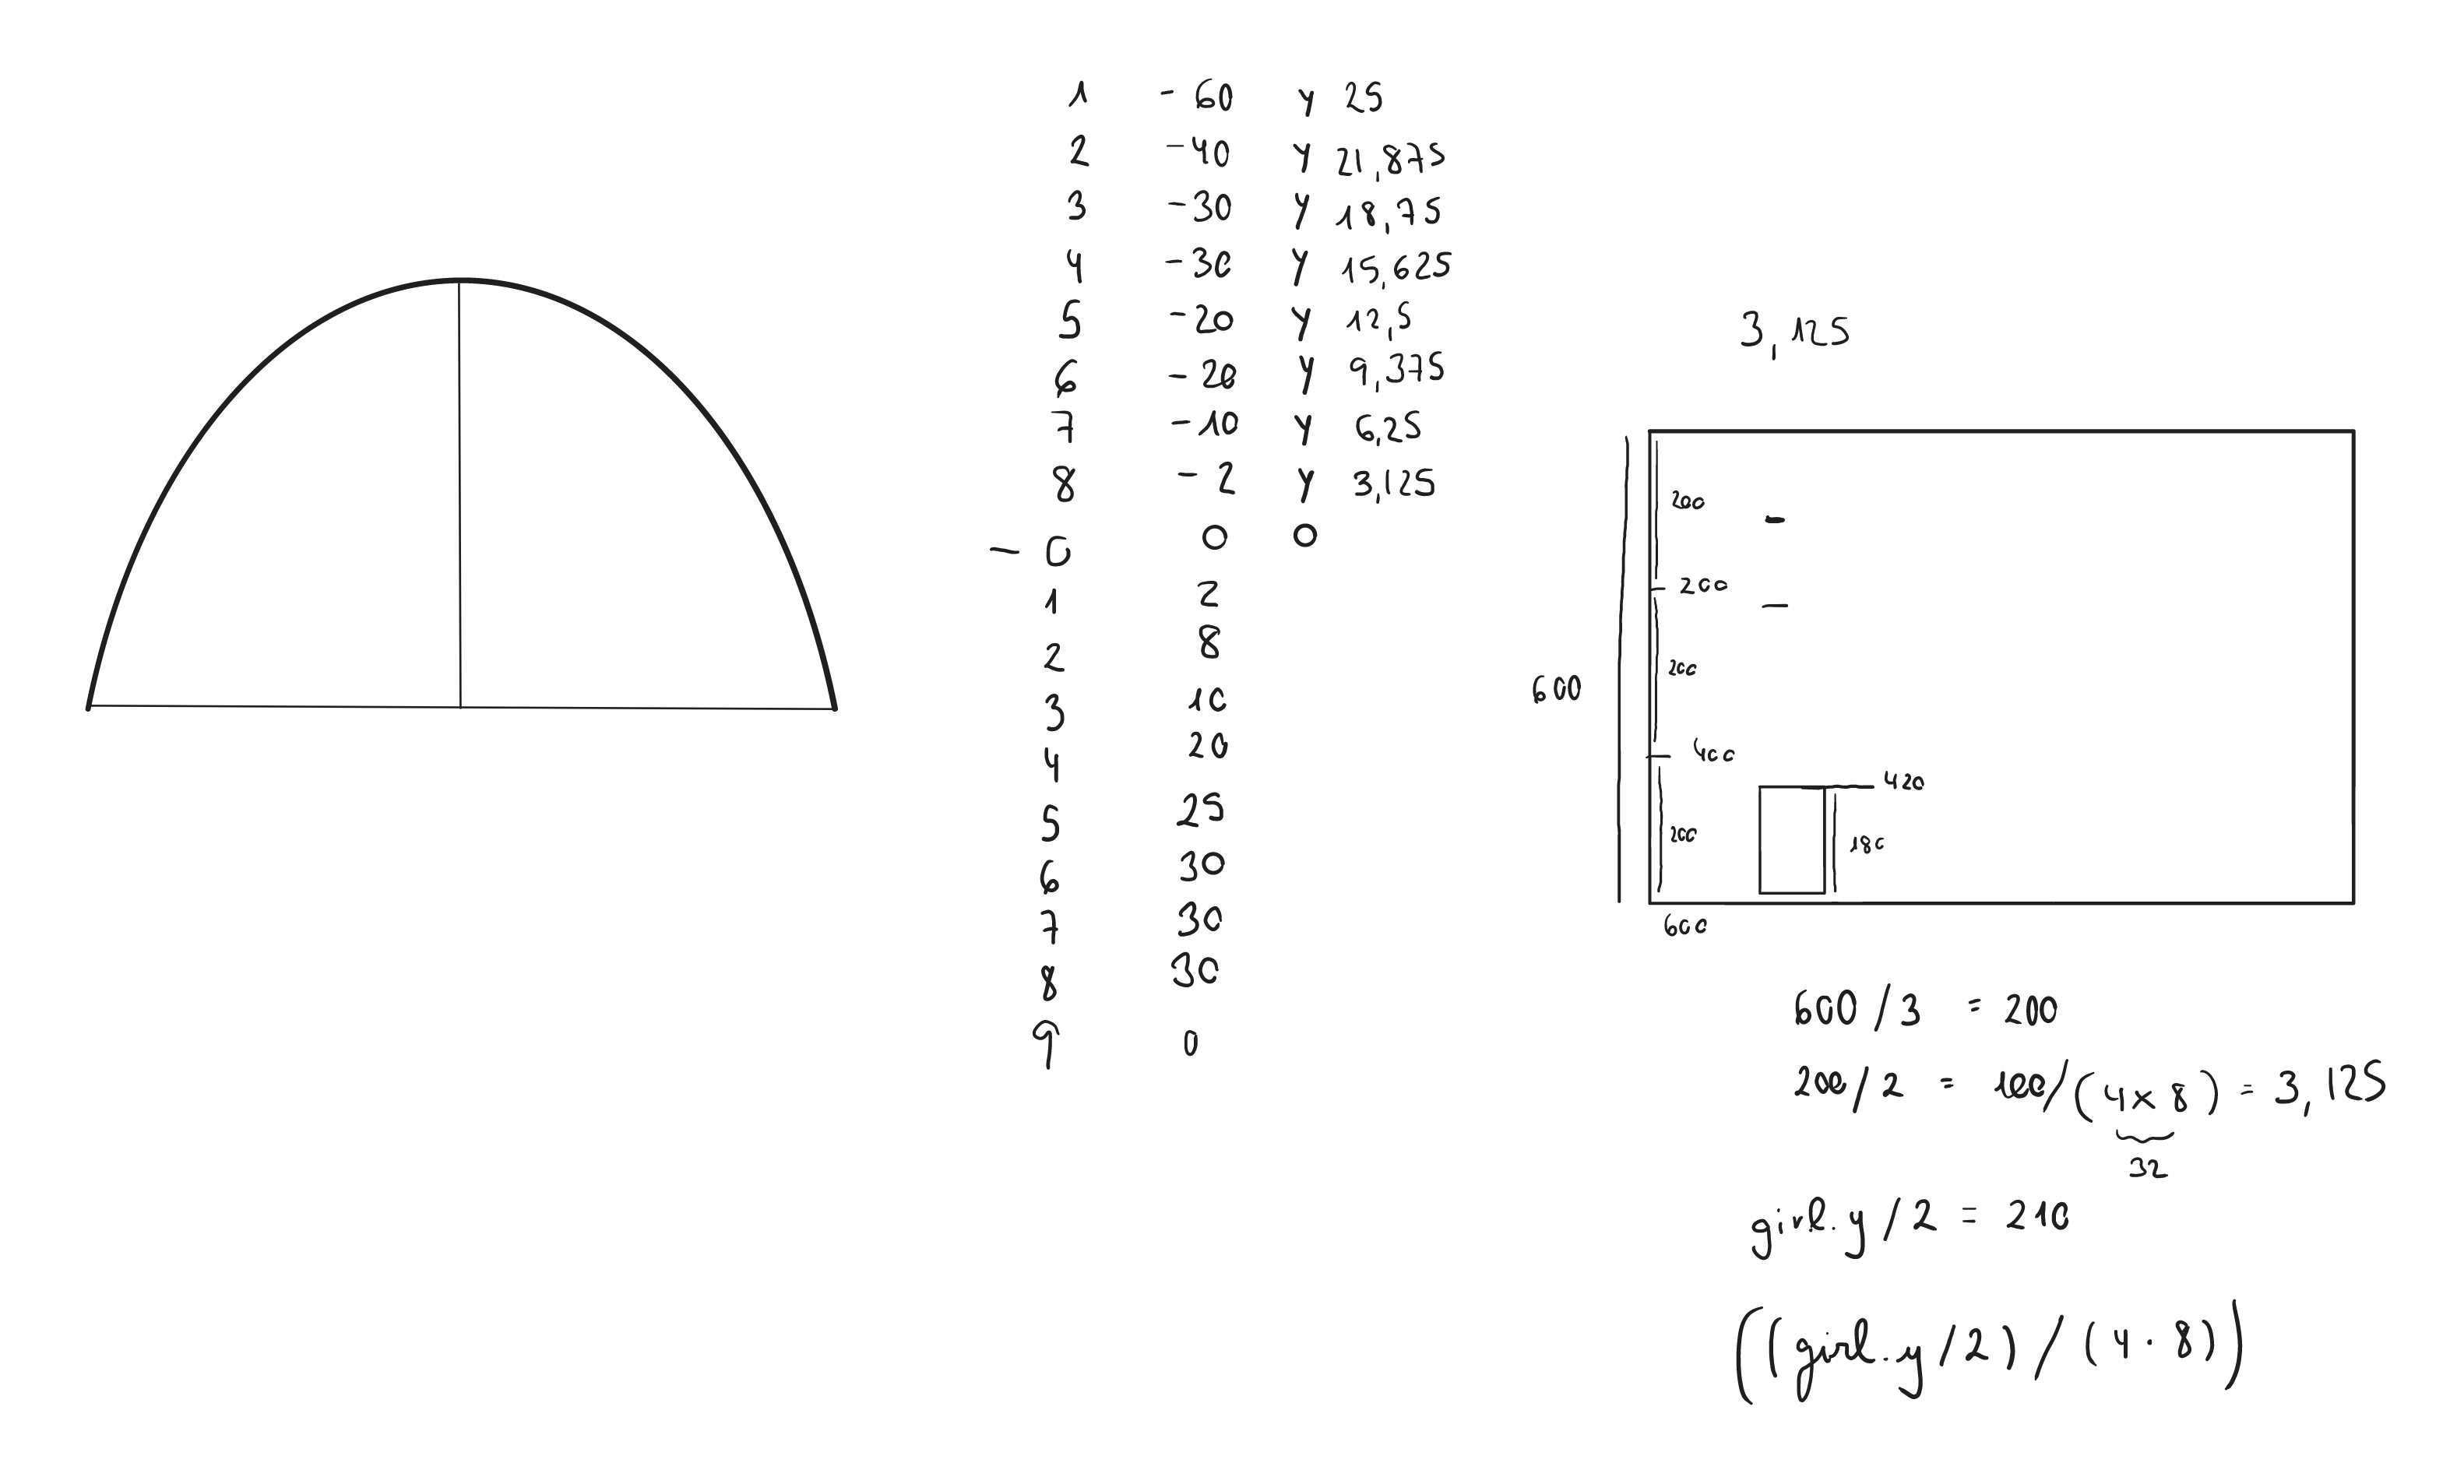 1 -60 y 25
2 -40 y 21,875
3 -30 y 18,75
4 -30 y 15,625
5 -20 y 12,5
6 -20 y 9,375
7 -10 y 6,25
8 -2 y 3,125
- 0 0 0
1 2
2 8
3 10
4 20
5 25
6 30
7 30
8 30
9 0
3,125
200
200
200
600
400
420
200
180
600
600/3 = 200
200/2 = 100/(4x8) = 3,125
32
girl.y/2 = 210
((girl.y/2)/(4·8))